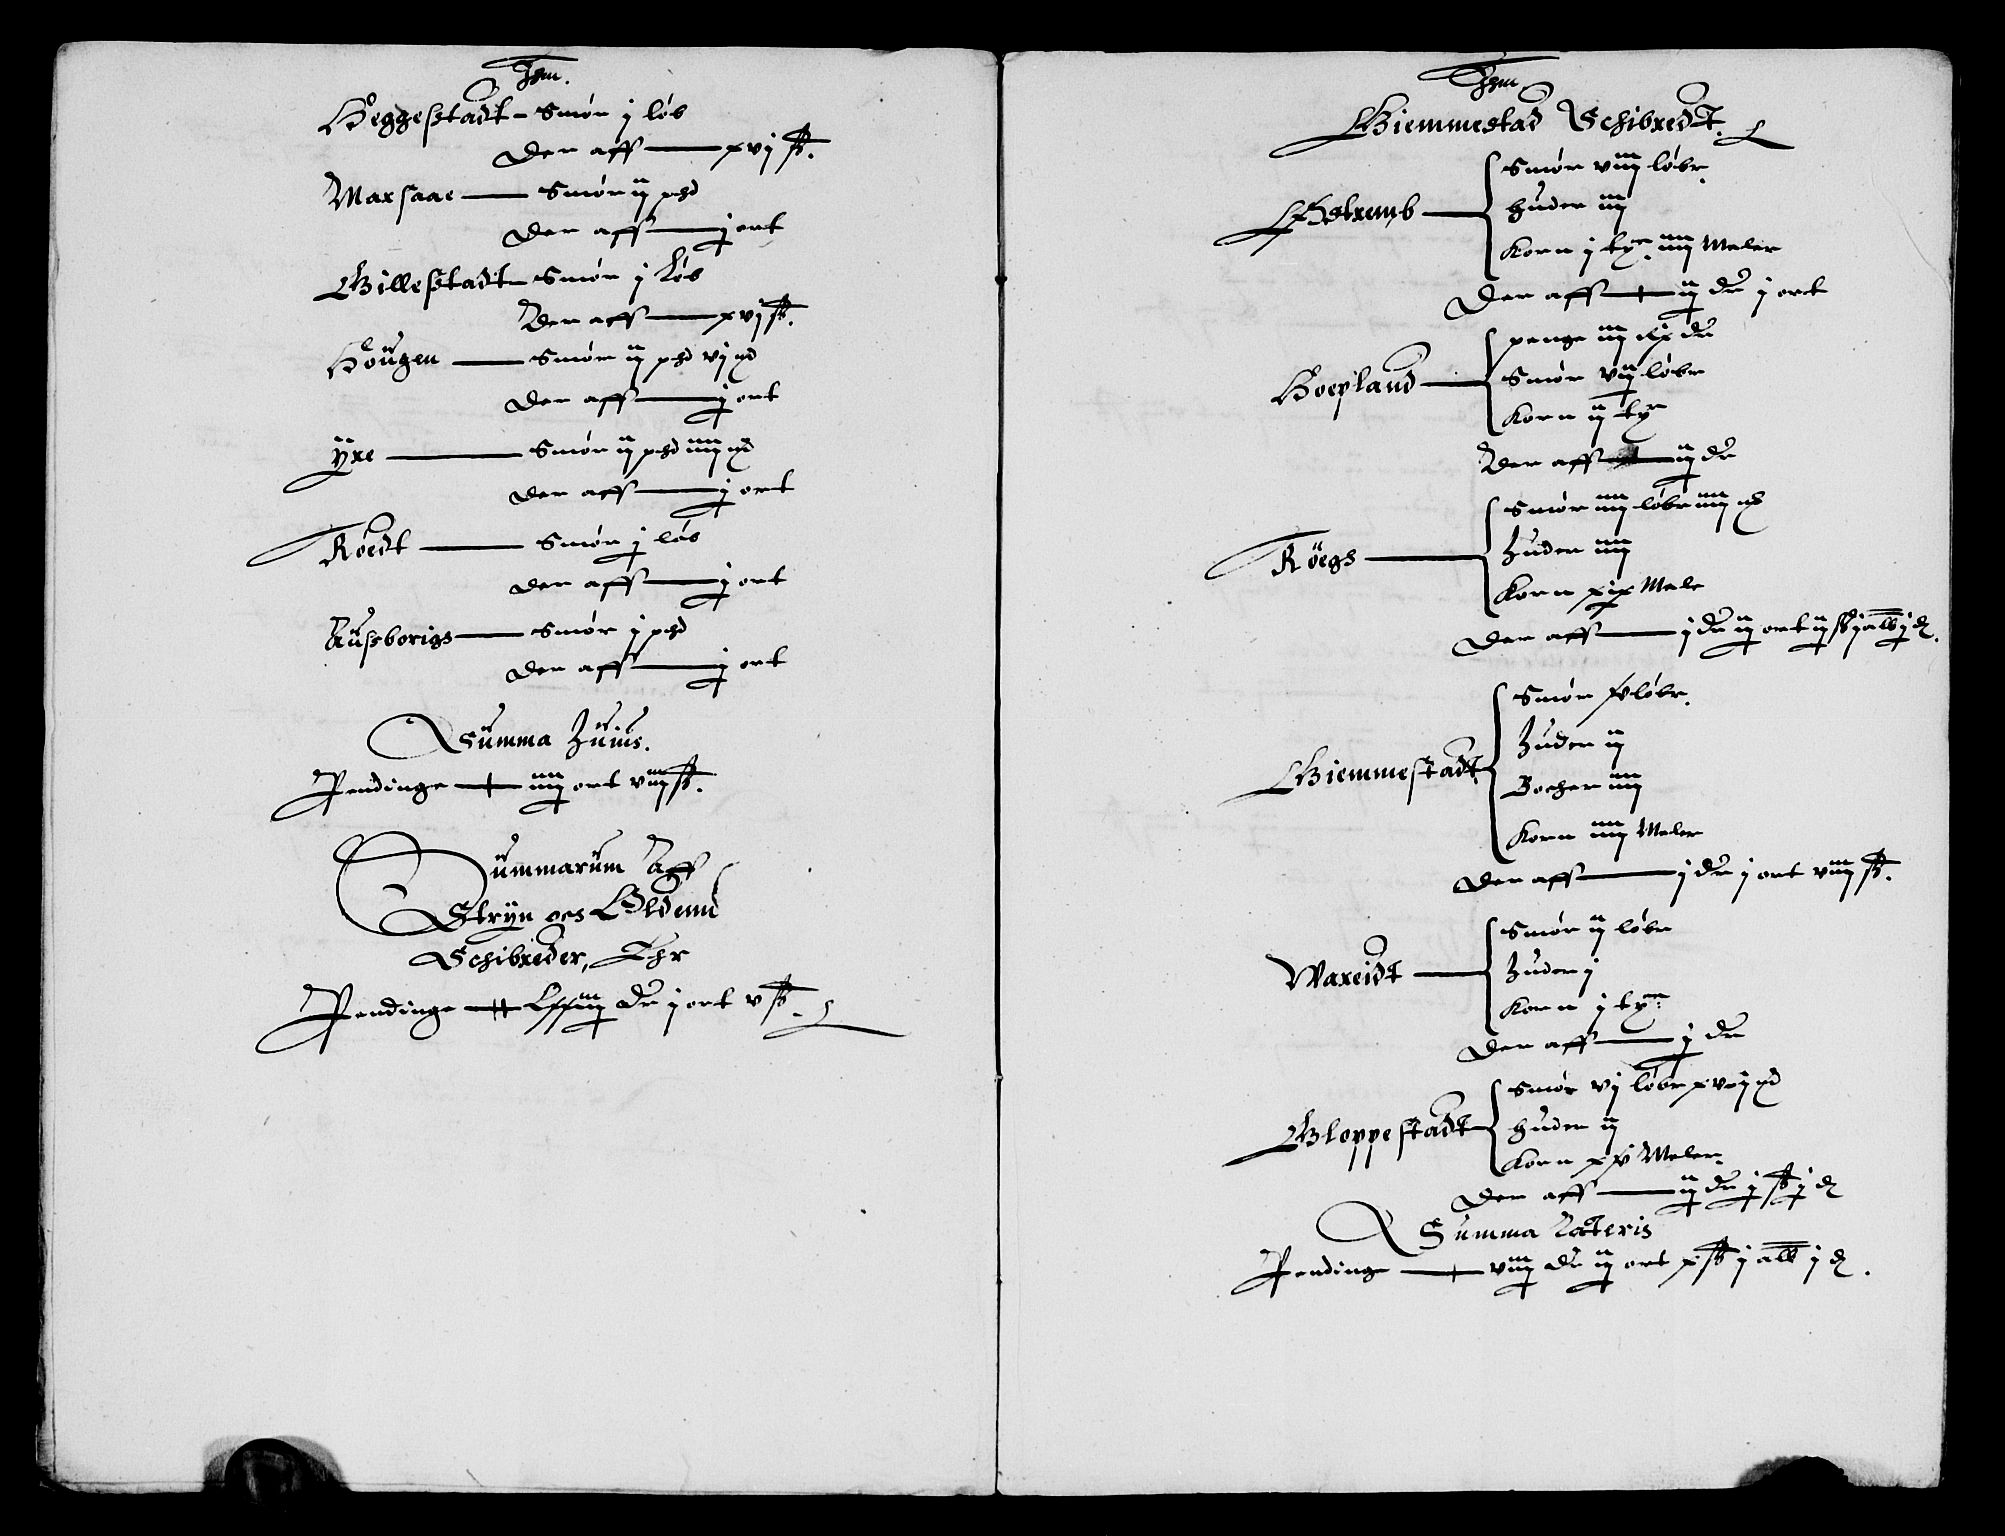 Ihm.
Heggestadt – Smør j løb
Der aff — xvj ß.
Marsaae — Smør ij pd
Der aff — j ort
Gillestadt – Smør j løb
Der aff — xvj ß.
Hougen — Smør ij pd vj mð
Der aff — j ort
ÿre — Smør ij pd iiij mð
Der aff — j ort
Røedt — Smør j løb
Der aff — j ort
Ausborigs — Smør j pd
Der aff — j ort
Summa huius.
Pendinge — iiij ort viij ß.
Summarum Aff
Strÿn ocs Oldenn
Schibreder, Ehr
Pendinge — dr j ort v ß.
Ihm
Giemmestad Schibredt.
Smør viij løbr.
huder iij
Korn j tÿr. iiij Meler
Der aff — ij dr j ort
Hoepland — penge iij dr
Smør vij løbr
Korn ij tÿr
Der aff — ij dr
Røegs — Smør iiij løbr iiij mð
Huder iiij
Korn xix Meler
Der aff — j dr ij ort ij ß j alb j d.
Giemmestadt — Smør xv løbr.
Huder ij
Bocher iiij
Korn iiij Meler
Der aff — j dr j ort viij ß.
Wareidt — Smør ij løbr
Huder j
Korn j tÿr
Der aff — j dr
Gloppestadt — Smør vj løbr xvij mð
huder ij
Korn xv Meler.
Der aff — ij dr j ß j d
Summa Lateris
Pendinge — viij dr ij ort x ß j alb j d.